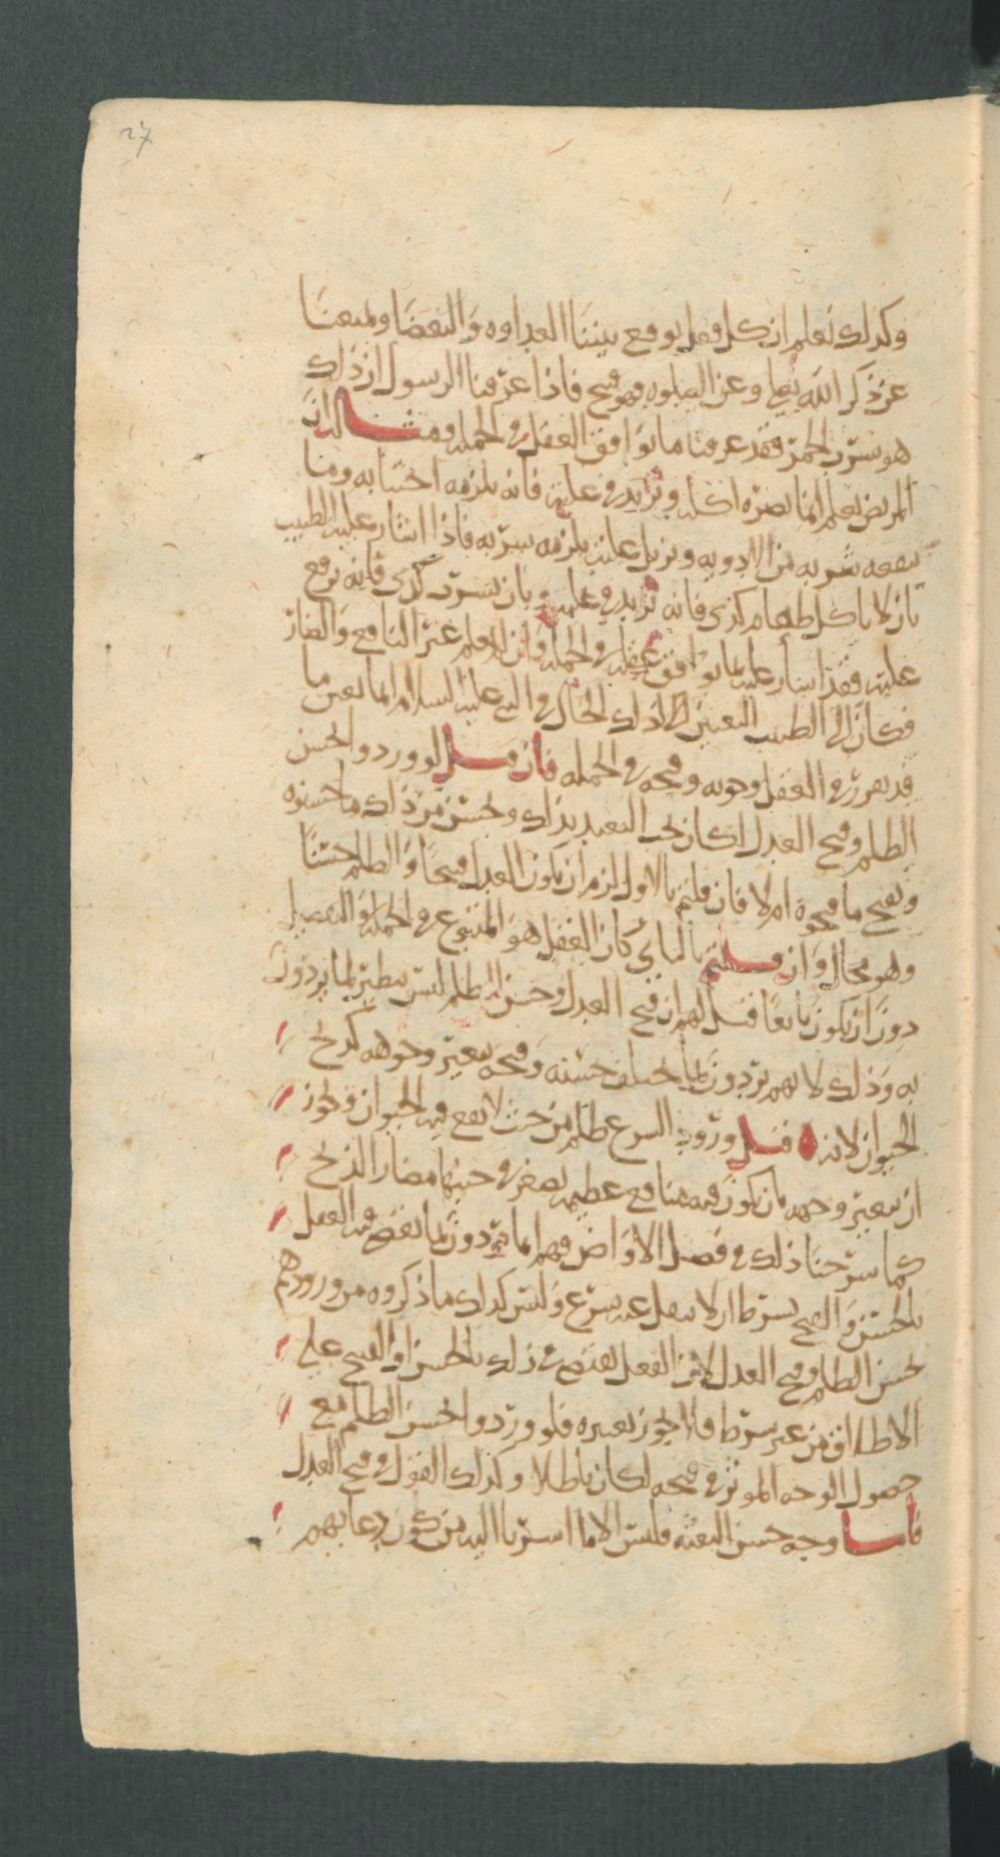 27
وكذلك نعلم ان كل فعل يوقع بيننا العداوه والبغضا ويمنعنا
عن ذكر الله تعالى وعن الصلوه فهو قبيح فاذا عرفنا الرسول ان ذلك
هو شرب الخمر فقد عرفنا ما يوافق العقل في الجمله ومثاله ان
المريض يعلم انما يضره اكله ويزيد في علته فانه يلزمه اجتنابه وما
ينفعه شربه من الادويه ويزيل علته يلزمه شربه فاذا اشار عليه الطبيب
بان لا ياكل طعام كذى فانه يزيد في علته وبان يشرب كذى فانه يرفع
علته فقد اشار عليه بما يوافق عقله في الجمله وان لم يعلم عين النافع والضار
فكان الى الطبيب التعيين كذلك الحال في النبي عليه السلام انما يعين ما
قد تقرر في العقل وجوبه وقبحه في الجمله فان قيل لو وردوا بحسن
الظلم وقبح العدل اكان يجب التعبد بذلك ويحسن من ذلك ما حسنوه
ويقبح ما قبحوه ام لا فان قلتم بالاول لزم ان يكون العدل قبيحا والظلم حسنا
وهو محال وان قلتم بالثاني كان العقل هو المتبوع في الجمله والتفصيل
دون ان يكون تابعا قيل لهم ان قبح العدل وحسن الظلم ليس بنظير لما يردون
به وذلك لانهم يردون بما يختلف حسنه وقبحه بتغير وجوهه كذبح
الحيوان لانه قبل ورود الشرع ظلم من حيث لا نفع فيه للحيوان ويجوز
ان يتغير وجهه بان يكون فيه منافع عظيمه يصغر في جنبها مضار الذبح
كما شرحنا ذلك في فصل الاعواض فهم انما يردون بما يقضي فيه العقل
بالحسن والقبح بشرط ان لا ينقل عنه شرع وليس كذلك ما ذكروه من ورودهم
بحسن الظلم وقبح العدل لان العقل يقضي في ذلك بالحسن او القبح على
الاطلاق من غير شرط فلا يجوز تغيره فلو وردوا بحسن الظلم مع
حصول الوجه الموثر في قبحه لكان باطلا وكذلك القول في قبح العدل
فاما وجه حسن البعثه فليس الا ما اشرنا اليه من كون دعائهم